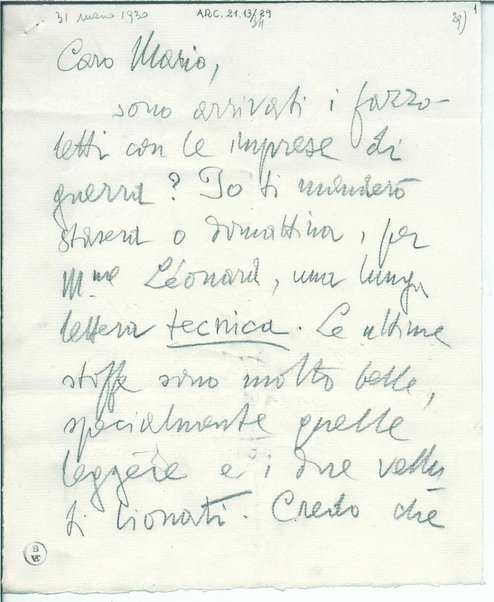 31 marzo 1930 ARC. 21.13/29 29) 1
Caro Mario,
sono arrivati i fazzo-
letti con le imprese di
guerra? Io ti manderò
stasera o domattina, per
M.me Léonard, una lunga
lettera tecnica. Le ultime
stoffe sono molto belle,
specialmente quelle
leggère e i due vellu
ti lionati. Credo chè